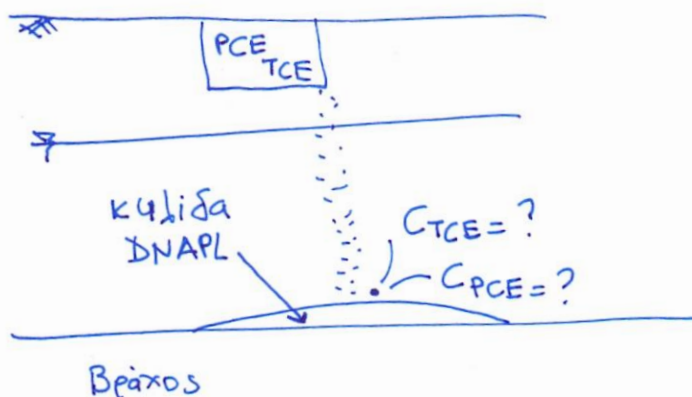 PCE
TCE
κηλίδα
DNAPL
CTCE = ?
CPCE = ?
Βράχος